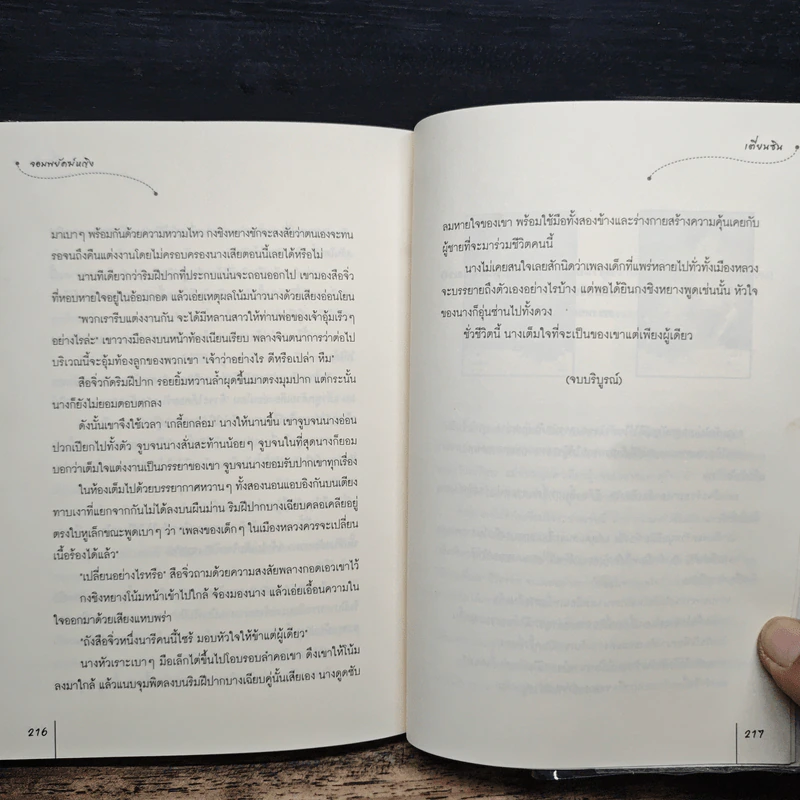 จอมพยัคฆ์หญิง
มาเบาๆ พร้อมกันด้วยความหวามไหว กงซิงหยางชักจะสงสัยว่าตนเองจะทน
รอจนถึงคืนแต่งงานโดยไม่ครอบครองนางเสียตอนนี้เลยได้หรือไม่
นานทีเดียวกว่าริมฝีปากที่ประกบแน่นจะถอนออกไป เขามองสือจิ่ว
ที่หอบหายใจอยู่ในอ้อมกอด แล้วเอ่ยเหตุผลโน้มน้าวนางด้วยเสียงอ่อนโยน
"พวกเรารีบแต่งงานกัน จะได้มีหลานสาวให้ท่านพ่อของเจ้าอุ้มเร็วๆ
อย่างไรล่ะ" เขาวางมือลงบนหน้าท้องเนียนเรียบ พลางจินตนาการว่าต่อไป
บริเวณนี้จะอุ้มท้องลูกของพวกเขา "เจ้าว่าอย่างไร ดีหรือเปล่า หืม"
สือจิ่วกัดริมฝีปาก รอยยิ้มหวานล้ำผุดขึ้นมาตรงมุมปาก แต่กระนั้น
นางก็ยังไม่ยอมตอบตกลง
ดังนั้นเขาจึงใช้เวลา 'เกลี้ยกล่อม' นางให้นานขึ้น เขาจูบจนนางอ่อน
ปวกเปียกไปทั้งตัว จูบจนนางสั่นสะท้านน้อยๆ จูบจนในที่สุดนางก็ยอม
บอกว่าเต็มใจแต่งงานเป็นภรรยาของเขา จูบจนนางยอมรับปากเขาทุกเรื่อง
ในห้องเต็มไปด้วยบรรยากาศหวานๆ ทั้งสองนอนแอบอิงกันบนเตียง
ทาบเงาที่แยกจากกันไม่ได้ลงบนผืนม่าน ริมฝีปากบางเฉียบคลอเคลียอยู่
ตรงใบหูเล็กขณะพูดเบาๆ ว่า "เพลงของเด็กๆ ในเมืองหลวงควรจะเปลี่ยน
เนื้อร้องได้แล้ว"
"เปลี่ยนอย่างไรหรือ" สือจิ่วถามด้วยความสงสัยพลางกอดเอวเขาไว้
กงซิงหยางโน้มหน้าเข้าไปใกล้ จ้องมองนาง แล้วเอ่ยเอื้อนความใน
ใจออกมาด้วยเสียงแหบพร่า
"ถังสือจิ่วหนึ่งนารีคนนี้ไซร้ มอบหัวใจให้ข้าแต่ผู้เดียว"
นางหัวเราะเบาๆ มือเล็กไต่ขึ้นไปโอบรอบลำคอเขา ดึงเขาให้โน้ม
ลงมาใกล้ แล้วแนบจุมพิตลงบนริมฝีปากบางเฉียบคู่นั้นเสียเอง นางดูดซับ
216
เตี่ยนซิน
ลมหายใจของเขา พร้อมใช้มือทั้งสองข้างและร่างกายสร้างความคุ้นเคยกับ
ผู้ชายที่จะมาร่วมชีวิตคนนี้
นางไม่เคยสนใจเลยสักนิดว่าเพลงเด็กที่แพร่หลายไปทั่วทั้งเมืองหลวง
จะบรรยายถึงตัวเองอย่างไรบ้าง แต่พอได้ยินกงซิงหยางพูดเช่นนั้น หัวใจ
ของนางก็อุ่นซ่านไปทั้งดวง
ชั่วชีวิตนี้ นางเต็มใจที่จะเป็นของเขาแต่เพียงผู้เดียว
(จบบริบูรณ์)
217